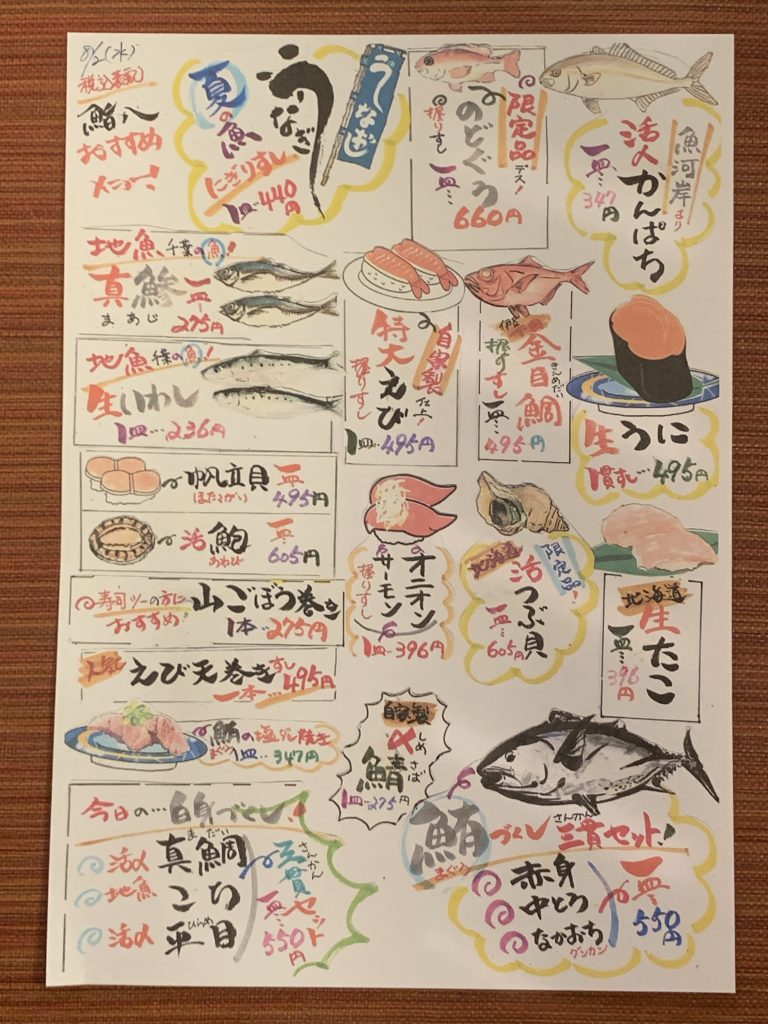 8/2(水)
税込表記
鮨八
おすすめ
メニュー!
夏の魚
うなぎ
うなぎ
にぎりすし
1皿…440円
限定品デス!
のどぐろ
握りすし
一皿…
660円
魚河岸より
活〆
かんぱち
一皿…347円
地魚 千葉の魚!
真鯵
まあじ
一皿…275円
地魚 千葉の魚!
生いわし
1皿…236円
自家製仕上!
特大えび
握りすし
1皿…495円
金目鯛
きんめだい
握りすし
一皿…
495円
生うに
一貫すし…495円
帆立貝
ほたてがい
一皿…495円
活鮑
あわび
一皿…605円
寿司ツーの方に
おすすめ!
山ごぼう巻き
1本…275円
人気
えび天巻きすし
一本…495円
オニオン
サーモン
握りすし
1皿…396円
北海道
限定品!
活つぶ貝
一皿…605円
北海道
生たこ
一皿…396円
鮪の塩ダレ焼き
まぐろ
1皿…347円
自家製
〆鯖
しめさば
1皿…275円
今日の…白身づくし!
活〆 真鯛
まだい
地魚 こち
活〆 平目
ひらめ
三貫セット
さんかん
一皿…550円
鮪づくし三貫セット!
まぐろ
さんかん
赤身
中とろ
なかおち
グンカン
一皿…
550円